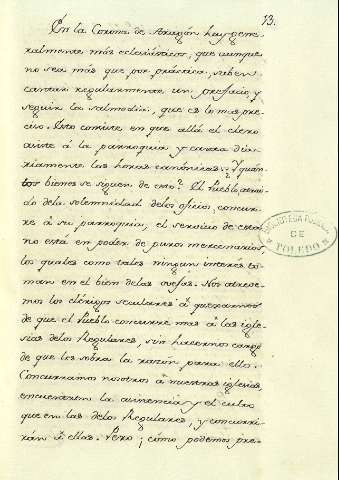 13.
En la Corona de Aragón hay gene-
ralmente más eclesiásticos, que aunque
no sea más que por práctica, saben
cantar regularmente un prefacio, y
seguir la salmodia, que es lo mas pre-
ciso. Esto consiste en que allá el clero
asiste á la parroquia y canta dia-
riamente las horas canónicas. ¿Y quán-
tos bienes se siguen de esto? El Pueblo atrai-
do de la solemnidad de los oficios, concur-
re á su parroquia, el servicio de estas
no está en poder de puros mercenarios
los quales como tales ningun interés to-
man en el bien de las ovejas. Nos atreve-
mos los clérigos seculares á quexarnos
de que el Pueblo concurre mas á las igle-
sias de los Regulares, sin hacernos cargo
de que les sobra la razón para ello.
Concurramos nosotros á nuestras iglesias
encuentren la asistencia y el culto
que en las de los Regulares, y concurri-
rán á ellas. Pero ¿cómo podemos pre-
BIBLIOTECA PUBLICA
DE
TOLEDO